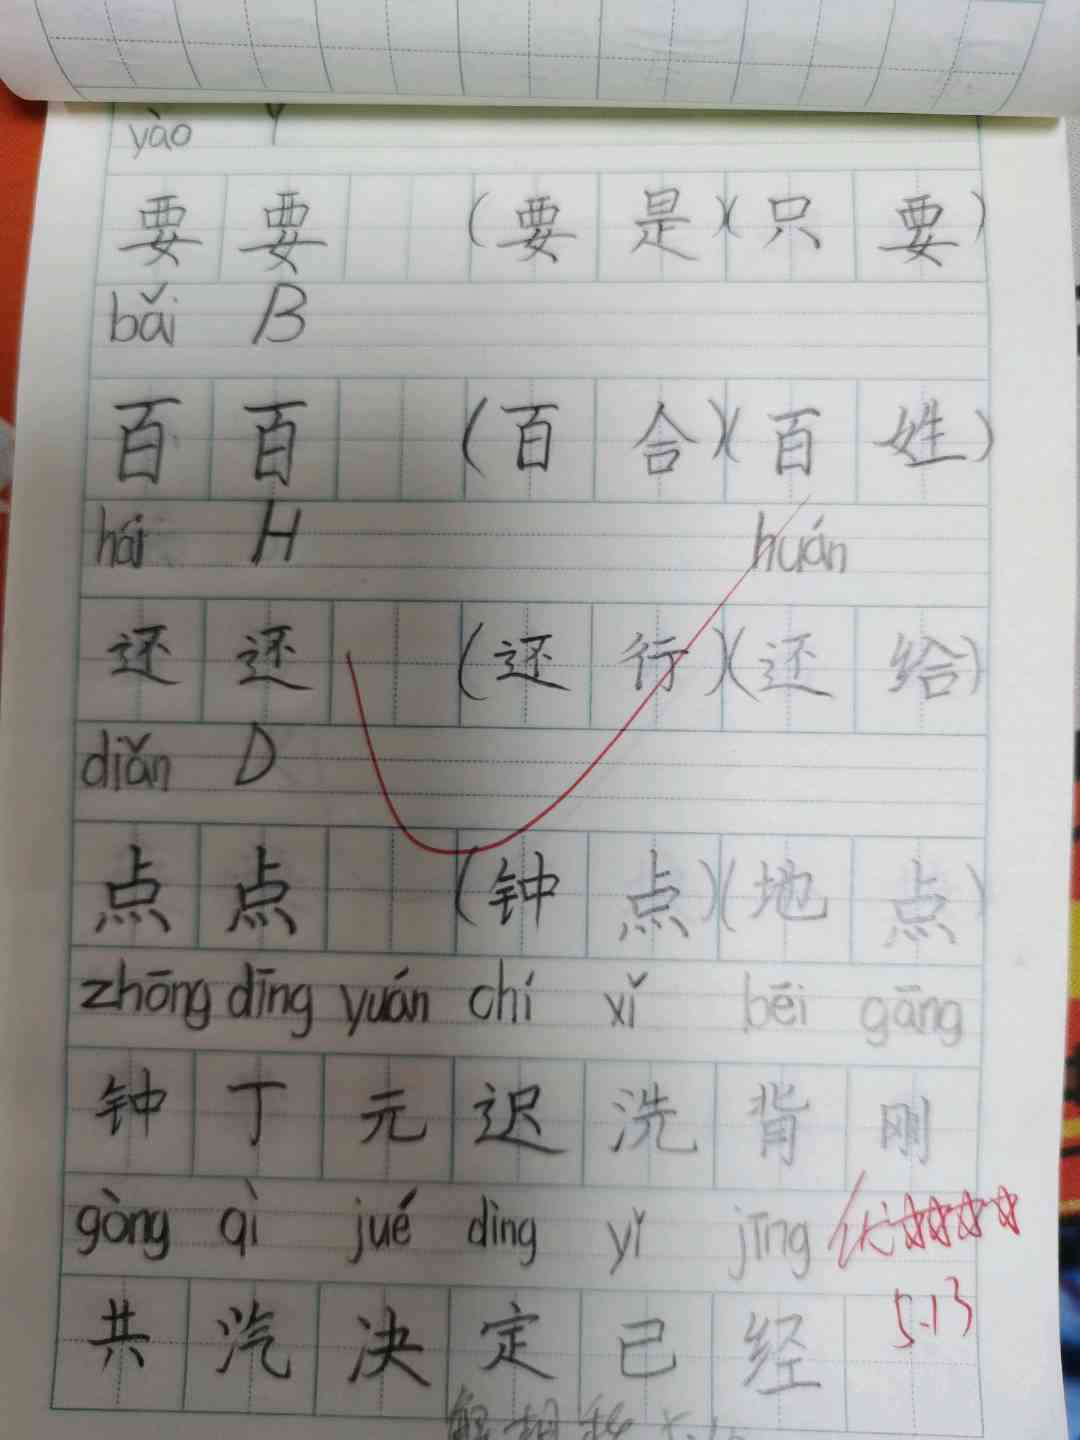 yào Y
要 要 (要 是)(只 要)
bǎi B
百 百 (百 合)(百 姓)
hái H huán
还 还 (还 行)(还 给)
diǎn D
点 点 (钟 点)(地 点)
zhōng dīng yuán chí xǐ bēi gāng
钟 丁 元 迟 洗 背 刚
gòng qì jué dìng yǐ jīng 优☆☆☆☆
共 汽 决 定 已 经 5.13